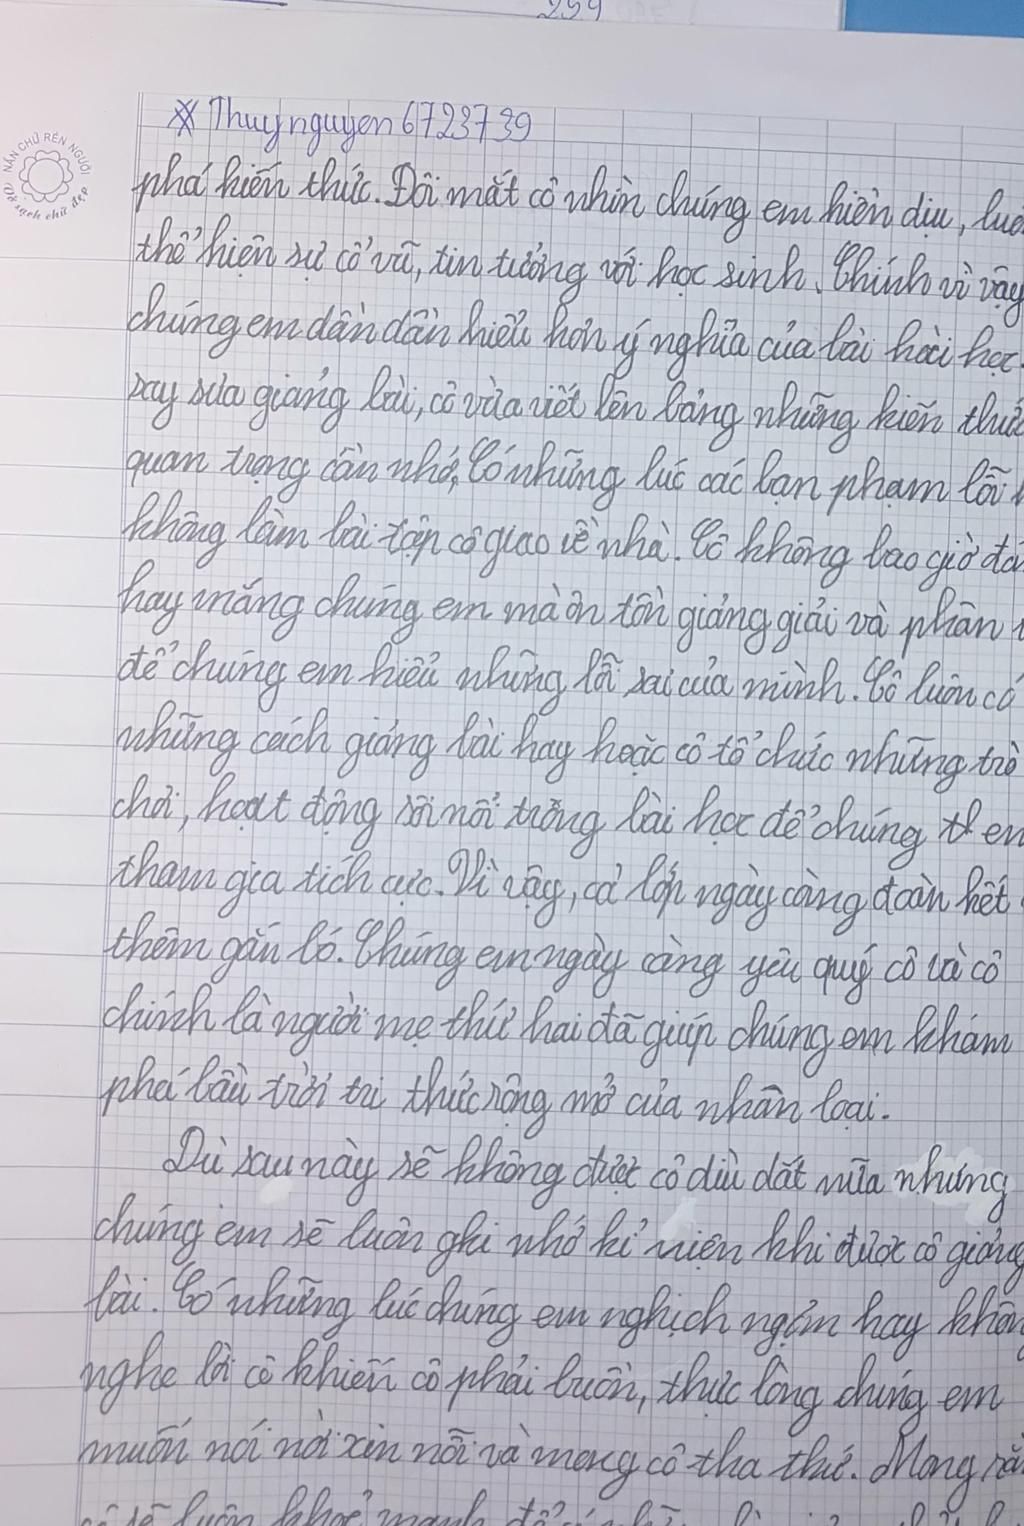 259
Thuynguyen6723739
NẮN CHỮ RÈN NGƯỜI
Vở sạch chữ đẹp
phá kiến thức. Đôi mắt cô nhìn chúng em hiền dịu, luô
thể hiện sự cổ vũ, tin tưởng với học sinh. Chính vì vậy
chúng em dần dần hiểu hơn ý nghĩa của bài hài học.
say sưa giảng bài, cô vừa viết lên bảng những kiến thức
quan trọng cần nhớ, Có những lúc các bạn phạm lỗi
không làm bài tập cô giao về nhà. Cô không bao giờ đá
hay mắng chúng em mà ôn tồn giảng giải và phân
để chúng em hiểu những lỗi sai của mình. Cô luôn có
những cách giảng bài hay hoặc cô tổ chức những trò
chơi, hoạt động sôi nổi trong bài học để chúng em
tham gia tích cực. Vì vậy, cả lớp ngày càng đoàn kết
thêm gắn bó. Chúng em ngày càng yêu quý cô và cô
chính là người mẹ thứ hai đã giúp chúng em khám
phá bầu trời tri thức rộng mở của nhân loại.
Dù sau này sẽ không được cô dìu dắt nữa nhưng
chúng em sẽ luôn ghi nhớ kỉ niệm khi được cô giảng
bài. Có những lúc chúng em nghịch ngợm hay khôn
nghe lời cô khiến cô phải buồn, thực lòng chúng em
muốn nói nời xin nỗi và mong cô tha thứ. Mong rằ
cô sẽ luôn khoẻ mạnh để